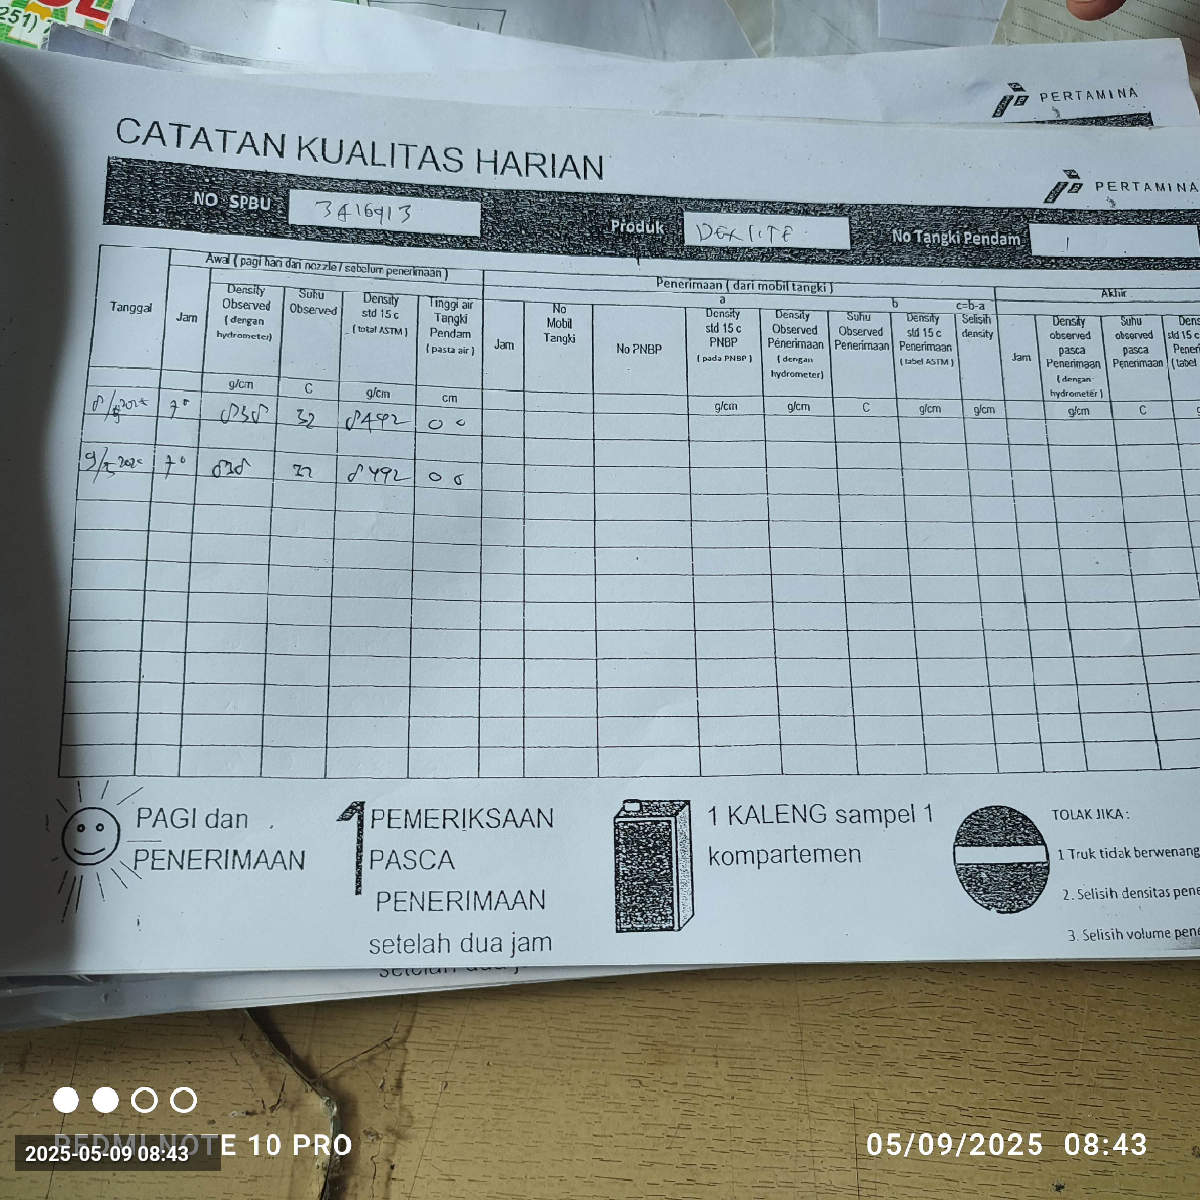 251)
PERTAMINA
CATATAN KUALITAS HARIAN
PERTAMINA
NO SPBU 3416913 Produk DEXLITE No Tangki Pendam 1
Awal ( pagi hari dari nozzle / sebelum penerimaan )
Penerimaan ( dari mobil tangki )
Akhir
a b c=b-a
Tanggal
Jam
Density Observed ( dengan hydrometer) g/cm
Suhu Observed C
Density std 15 c ( total ASTM ) g/cm
Tinggi air Tangki Pendam ( pasta air ) cm
Jam
No Mobil Tangki
No PNBP
Density std 15 c PNBP ( pada PNBP ) g/cm
Density Observed Penerimaan ( dengan hydrometer) g/cm
Suhu Observed Penerimaan C
Density std 15 c Penerimaan ( tabel ASTM ) g/cm
Selisih density g/cm
Jam
Density observed pasca Penerimaan ( dengan hydrometer ) g/cm
Suhu observed pasca Penerimaan C
Dens std 15 c Peneri ( tabel
8/5 2025 7° 838 32 8492 0 0
9/5 2025 7° 838 32 8492 0 0
PAGI dan
PENERIMAAN
1 PEMERIKSAAN
PASCA
PENERIMAAN
setelah dua jam
1 KALENG sampel 1
kompartemen
TOLAK JIKA :
1 Truk tidak berwenang
2. Selisih densitas pene
3. Selisih volume pene
setelah dua j
REDMI NOTE 10 PRO
2025-05-09 08:43
05/09/2025 08:43